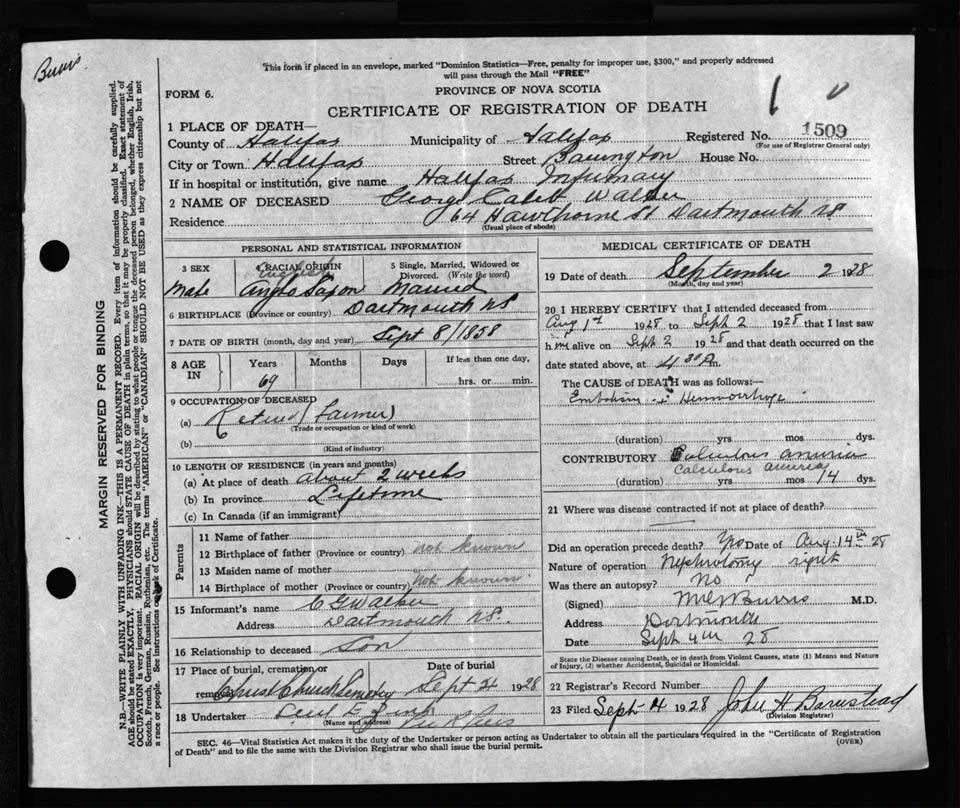 Burris
This form if placed in an envelope, marked "Dominion Statistics—Free, penalty for improper use, $300," and properly addressed
will pass through the Mail "FREE"
FORM 6.
PROVINCE OF NOVA SCOTIA
CERTIFICATE OF REGISTRATION OF DEATH
1
1 PLACE OF DEATH—
County of Halifax Municipality of Halifax Registered No. 1509
(For use of Registrar General only)
City or Town Halifax Street Barrington House No.
If in hospital or institution, give name Halifax Infirmary
2 NAME OF DECEASED George Caleb Walker
Residence 64 Hawthorne St Dartmouth NS
(Usual place of abode)
PERSONAL AND STATISTICAL INFORMATION
3 SEX
Male
RACIAL ORIGIN
English
Anglo Saxon
5 Single, Married, Widowed or
Divorced. (Write the word)
Married
6 BIRTHPLACE (Province or country) Dartmouth NS
7 DATE OF BIRTH (month, day and year) Sept 8/1858
8 AGE
IN
Years
69
Months
Days
If less than one day,
......hrs. or ......min.
9 OCCUPATION OF DECEASED
(a) Retired Farmer
(Trade or occupation or kind of work)
(b)
(Kind of industry)
10 LENGTH OF RESIDENCE (in years and months)
(a) At place of death about 2 weeks
(b) In province Lifetime
(c) In Canada (if an immigrant)
Parents
11 Name of father
12 Birthplace of father (Province or country) not known
13 Maiden name of mother
14 Birthplace of mother (Province or country) Not known.
15 Informant's name C G Walker
Address Dartmouth NS.
16 Relationship to deceased Son
17 Place of burial, cremation or
removal Christ Church Cemetery
Date of burial
Sept 4 1928
18 Undertaker
(Name and address)
MEDICAL CERTIFICATE OF DEATH
19 Date of death September 2 1928
(Month, day and year)
20 I HEREBY CERTIFY that I attended deceased from
Aug 1st 1928 to Sept 2 1928 that I last saw
him alive on Sept 2 1928 and that death occurred on the
date stated above, at 4 30 P m.
The CAUSE of DEATH was as follows:—
Embolism + Hemmorrhage
(duration) yrs mos dys.
CONTRIBUTORY Calculous anuria
Calculous anuria
(duration) yrs mos 14 dys.
21 Where was disease contracted if not at place of death?
Did an operation precede death? Yes Date of Aug 14th 28
Nature of operation Nephrotomy right
Was there an autopsy? No
(Signed) Burris M.D.
Address Dartmouth
Date Sept 4th 28
State the Disease causing Death, or in death from Violent Causes, state (1) Means and Nature
of Injury, and (2) whether Accidental, Suicidal or Homicidal.
22 Registrar's Record Number
23 Filed Sept 4 1928 John H Barnstead
(Division Registrar)
SEC. 46—Vital Statistics Act makes it the duty of the Undertaker or person acting as Undertaker to obtain all the particulars required in the "Certificate of Registration
of Death" and to file the same with the Division Registrar who shall issue the burial permit.
(OVER)
MARGIN RESERVED FOR BINDING
N.B.—WRITE PLAINLY WITH UNFADING INK—THIS IS A PERMANENT RECORD. Every item of information should be carefully supplied.
AGE should be stated EXACTLY. PHYSICIANS should STATE CAUSE OF DEATH in plain terms, so that it may be properly classified. Exact statement of
OCCUPATION is very important. RACIAL ORIGIN will be described by stating to what people or tongue the deceased person belonged, whether English, Irish,
Scotch, French, German, Russian, Ruthenian, etc. The terms "AMERICAN" or "CANADIAN" SHOULD NOT BE USED as they express citizenship but not
a race or people. See instructions on back of Certificate.